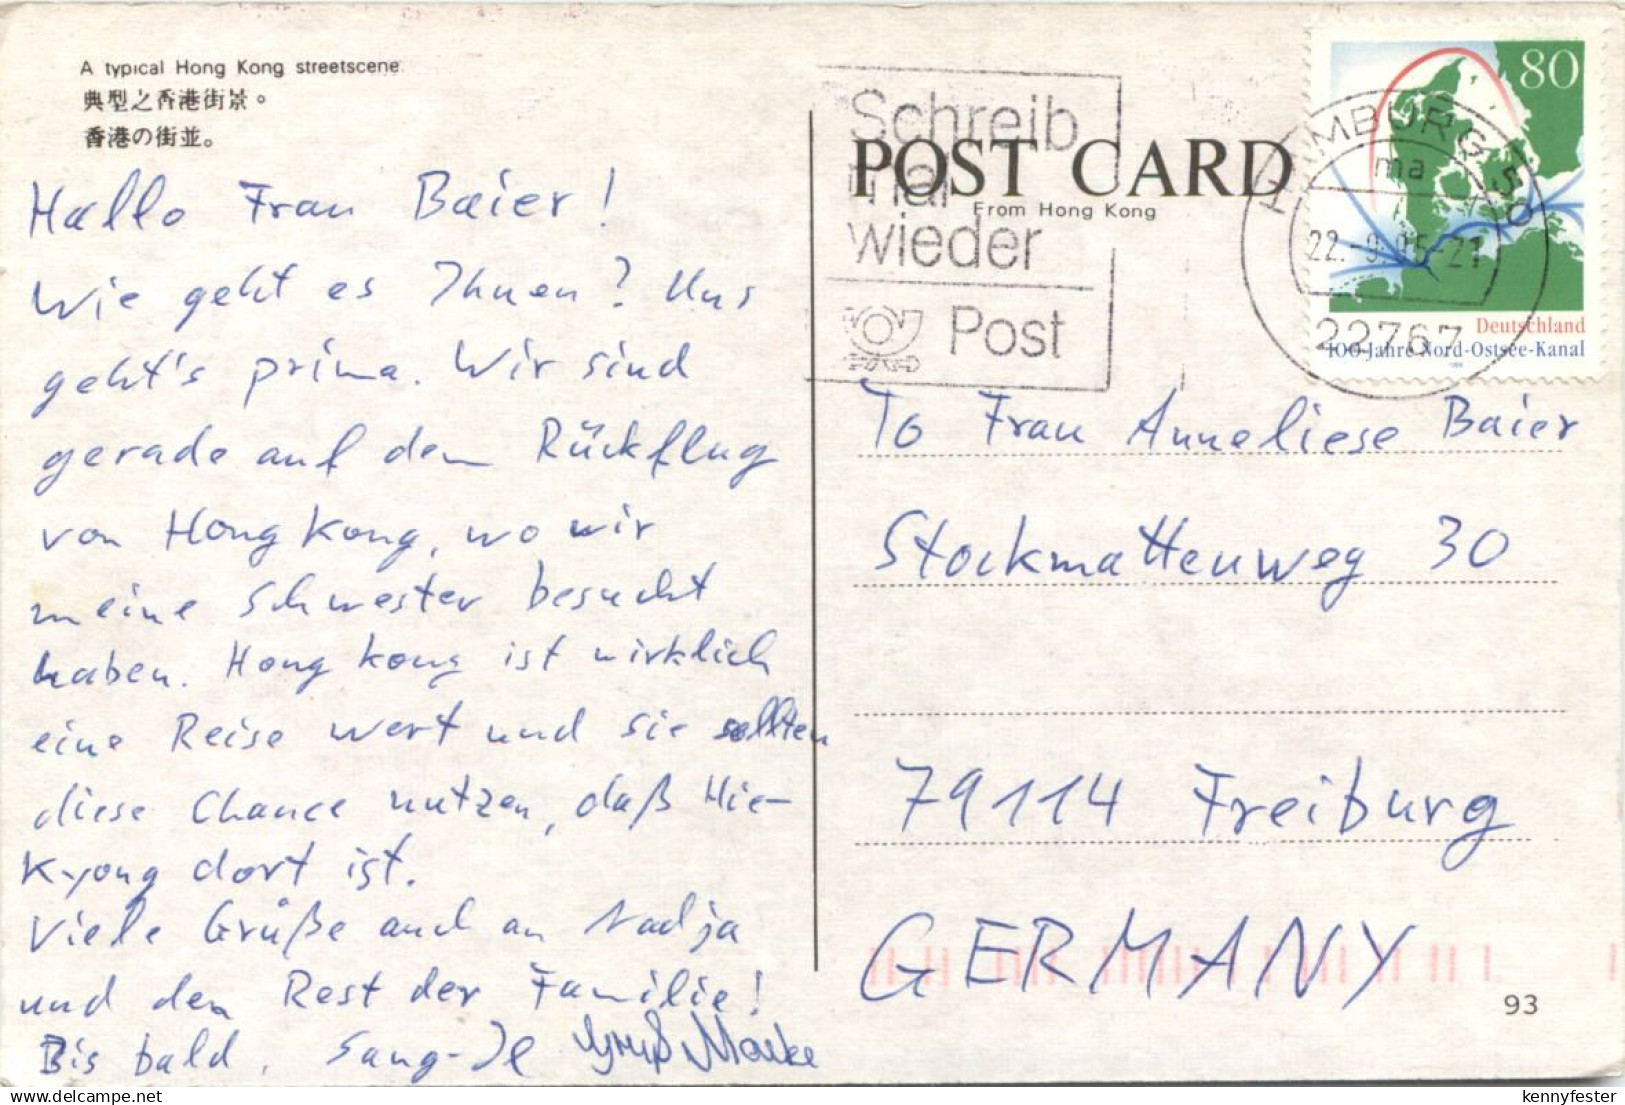 A typical Hong Kong streetscene.
典型之香港街景。
香港の街並。
Hallo Frau Baier!
Wie geht es Ihnen? Uns
geht's prima. Wir sind
gerade auf dem Rückflug
von Hong Kong, wo wir
meine Schwester besucht
haben. Hong Kong ist wirklich
eine Reise wert und sie sollten
diese Chance nutzen, daß Hie-
Kyong dort ist.
Viele Grüße auch an Nadja
und den Rest der Familie!
Bis bald, Sang-Il Gruß Maike
Schreib
mal
wieder
Post
POST CARD
From Hong Kong
HAMBURG 50
ma
22.-9.95-21
22767
80
Deutschland
100 Jahre Nord-Ostsee-Kanal
To Frau Anneliese Baier
Stockmattenweg 30
79114 Freiburg
GERMANY
93
delcampe.net
kennyfester